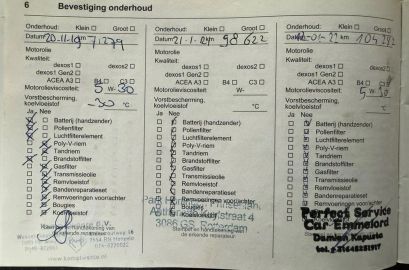 6 Bevestiging onderhoud
Onderhoud: Klein Groot
Datum 20-11-19 km 71279
Motorolie
Kwaliteit:
dexos1 dexos2
dexos1 Gen2
ACEA A3 B4 C3
Motorolieviscositeit 5 W- 30
Vorstbescherming,
koelvloeistof -30 °C
Ja Nee
Batterij (handzender)
Pollenfilter
Luchtfilterelement
Poly-V-riem
Tandriem
Brandstoffilter
Gasfilter
Transmissieolie
Remvloeistof
Bandenreparatieset
Remvoeringen voorr/achter
Bougies
Koelvloeistof
Onderhoud: Klein Groot
Datum 21-1-21 km 98622
Motorolie
Kwaliteit:
dexos1 dexos2
dexos1 Gen2
ACEA A3 B4 C3
Motorolieviscositeit W-
Vorstbescherming,
koelvloeistof °C
Ja Nee
Batterij (handzender)
Pollenfilter
Luchtfilterelement
Poly-V-riem
Tandriem
Brandstoffilter
Gasfilter
Transmissieolie
Remvloeistof
Bandenreparatieset
Remvoeringen voorr/achter
Bougies
Koelvloeistof
3086 GS Rotterdam
Stempel en handtekening van
de erkende reparateur
Onderhoud: Klein Groot
Datum km
Motorolie
Kwaliteit:
dexos1 dexos2
dexos1 Gen2
ACEA A3 B4 C3
Motorolieviscositeit 5 W- 30
Vorstbescherming,
koelvloeistof °C
Ja Nee
Batterij (handzender)
Pollenfilter
Luchtfilterelement
Poly-V-riem
Tandriem
Brandstoffilter
Gasfilter
Transmissieolie
Remvloeistof
Bandenreparatieset
Remvoeringen voorr/achter
Bougies
Perfect Service
Car Emmeloord
Damian Kapusta